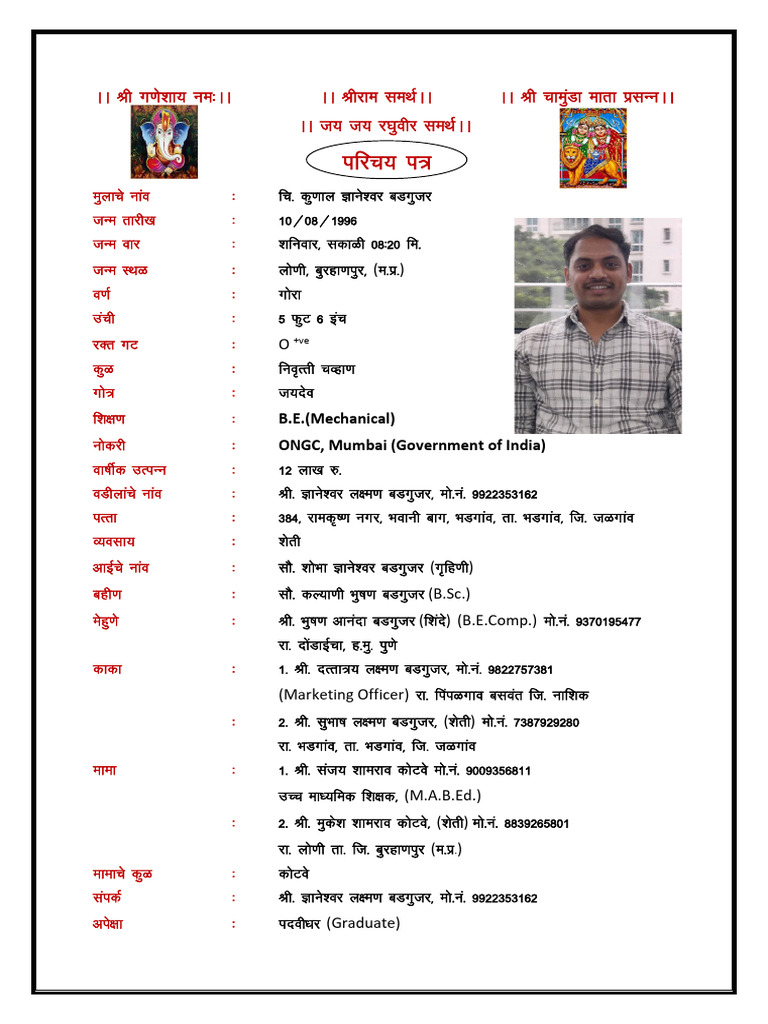 ।। श्री गणेशाय नमः।। ।। श्रीराम समर्थ।। ।। श्री चामुंडा माता प्रसन्न।।
।। जय जय रघुवीर समर्थ।।
परिचय पत्र
मुलाचे नांव : चि. कुणाल ज्ञानेश्वर बडगुजर
जन्म तारीख : 10/08/1996
जन्म वार : शनिवार, सकाळी 08:20 मि.
जन्म स्थळ : लोणी, बुरहाणपुर, (म.प्र.)
वर्ण : गोरा
उंची : 5 फुट 6 इंच
रक्त गट : O +ve
कुळ : निवृत्ती चव्हाण
गोत्र : जयदेव
शिक्षण : B.E.(Mechanical)
नोकरी : ONGC, Mumbai (Government of India)
वार्षीक उत्पन्न : 12 लाख रु.
वडीलांचे नांव : श्री. ज्ञानेश्वर लक्ष्मण बडगुजर, मो.नं. 9922353162
पत्ता : 384, रामकृष्ण नगर, भवानी बाग, भडगांव, ता. भडगांव, जि. जळगांव
व्यवसाय : शेती
आईचे नांव : सौ. शोभा ज्ञानेश्वर बडगुजर (गृहिणी)
बहीण : सौ. कल्याणी भुषण बडगुजर (B.Sc.)
मेहुणे : श्री. भुषण आनंदा बडगुजर (शिंदे) (B.E.Comp.) मो.नं. 9370195477
रा. दोंडाईचा, ह.मु. पुणे
काका : 1. श्री. दत्तात्रय लक्ष्मण बडगुजर, मो.नं. 9822757381
(Marketing Officer) रा. पिंपळगाव बसवंत जि. नाशिक
: 2. श्री. सुभाष लक्ष्मण बडगुजर, (शेती) मो.नं. 7387929280
रा. भडगांव, ता. भडगांव, जि. जळगांव
मामा : 1. श्री. संजय शामराव कोटवे मो.नं. 9009356811
उच्च माध्यमिक शिक्षक, (M.A.B.Ed.)
: 2. श्री. मुकेश शामराव कोटवे, (शेती) मो.नं. 8839265801
रा. लोणी ता. जि. बुरहाणपुर (म.प्र.)
मामाचे कुळ : कोटवे
संपर्क : श्री. ज्ञानेश्वर लक्ष्मण बडगुजर, मो.नं. 9922353162
अपेक्षा : पदवीघर (Graduate)